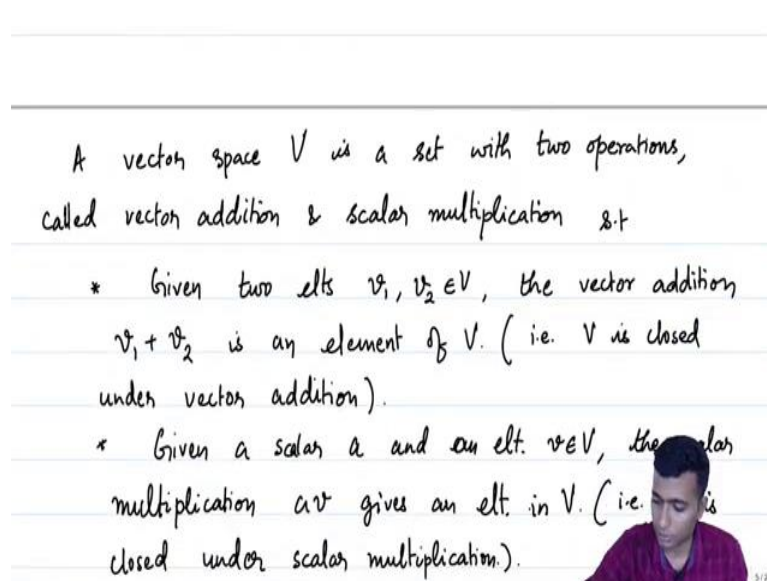 A vector space V is a set with two operations,
called vector addition & scalar multiplication s.t
* Given two elts v₁, v₂ ∈ V, the vector addition
v₁ + v₂ is an element of V. ( i.e. V is closed
under vector addition).
* Given a scalar a and an elt. v ∈ V, the
multiplication av gives an elt. in V. ( i.e. is
closed under scalar multiplication.).